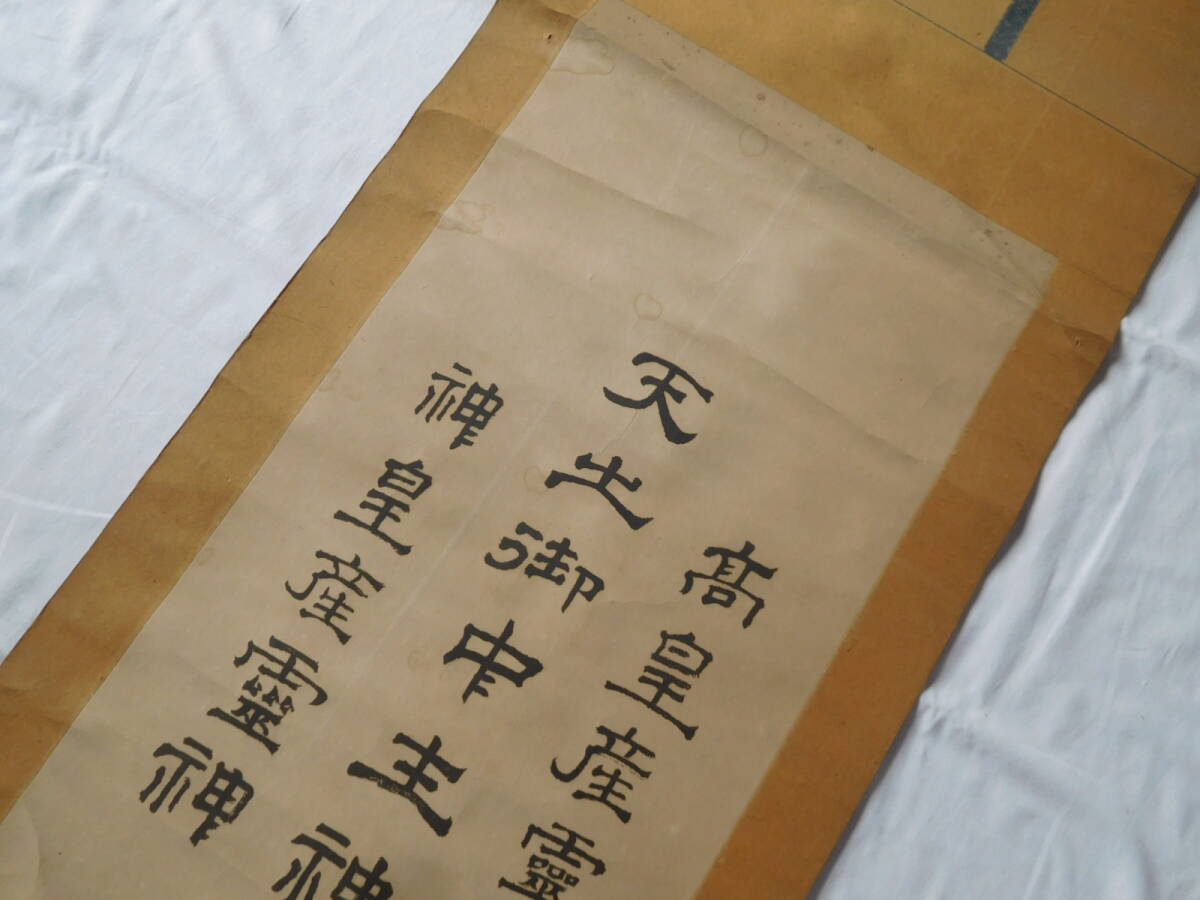 高皇産靈
天之御中主神
神皇産靈神